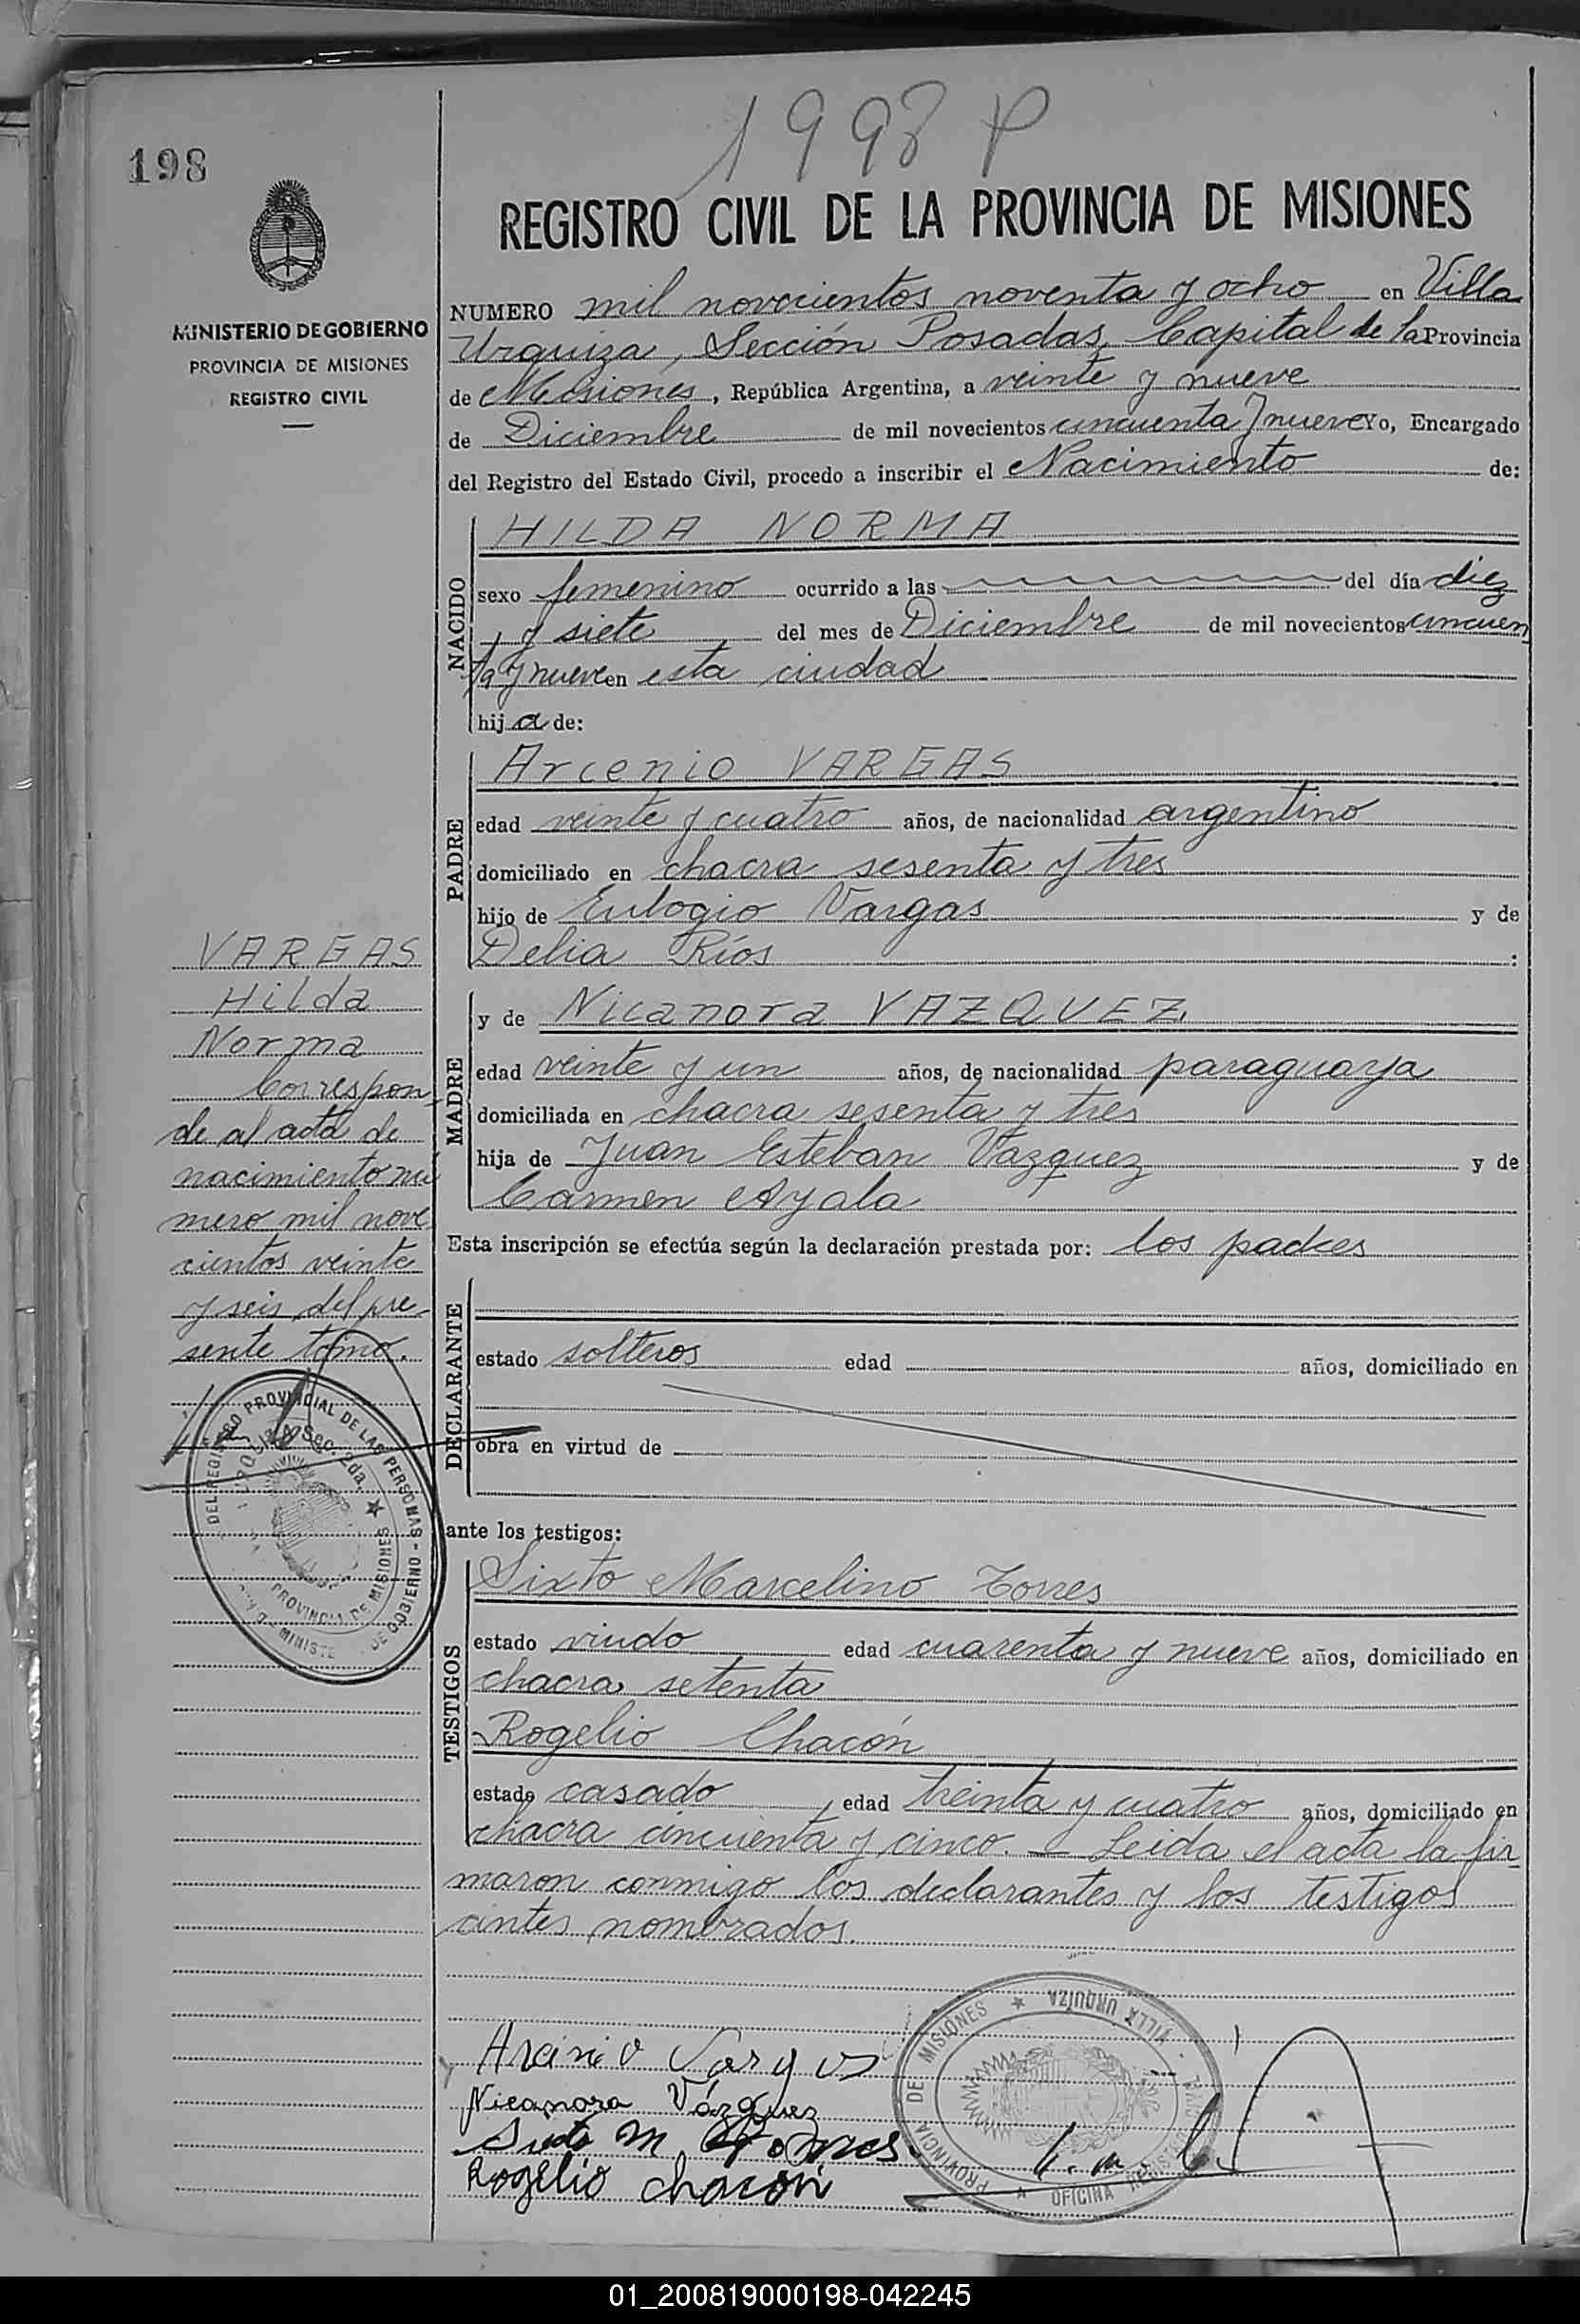 1998 P
198
REGISTRO CIVIL DE LA PROVINCIA DE MISIONES
MINISTERIO DE GOBIERNO
PROVINCIA DE MISIONES
REGISTRO CIVIL
NUMERO mil novecientos noventa y ocho en Villa
Urquiza, Sección Posadas, Capital de la Provincia
de Misiones, República Argentina, a veinte y nueve
de Diciembre de mil novecientos cincuenta y nueve Yo, Encargado
del Registro del Estado Civil, procedo a inscribir el Nacimiento de:
NACIDO
HILDA NORMA
sexo femenino ocurrido a las del día diez
y siete del mes de Diciembre de mil novecientos cincuen
ta y nueve en esta ciudad
hija de:
PADRE
Arcenio VARGAS
edad veinte y cuatro años, de nacionalidad argentino
domiciliado en chacra sesenta y tres
hijo de Eulogio Vargas y de
Delia Ríos :
MADRE
y de Nicanora VAZQUEZ.
edad veinte y un años, de nacionalidad paraguaya
domiciliada en chacra sesenta y tres
hija de Juan Esteban Vázquez y de
Carmen Ayala
Esta inscripción se efectúa según la declaración prestada por: los padres
DECLARANTE
estado solteros edad años, domiciliado en
obra en virtud de
ante los testigos:
TESTIGOS
Sixto Marcelino Torres
estado viudo edad cuarenta y nueve años, domiciliado en
chacra setenta
Rogelio Chacón
estado casado, edad treinta y cuatro años, domiciliado en
chacra cincuenta y cinco. — Leida el acta la fir
maron conmigo los declarantes y los testigos
antes nombrados.
VARGAS
Hilda
Norma
Correspon-
de al acta de
nacimiento nú
mero mil nove
cientos veinte
y seis del pre-
sente tomo.
DEL REGISTRO PROVINCIAL DE LAS PERSONAS
Sec. 2da.
PROVINCIA DE MISIONES
DE GOBIERNO
Arcinio Vargas
Nicanora Vázquez
Sixto M. Torres
Rogelio chacón
PROVINCIA DE MISIONES ★ VILLA URQUIZA
OFICINA
01_200819000198-042245